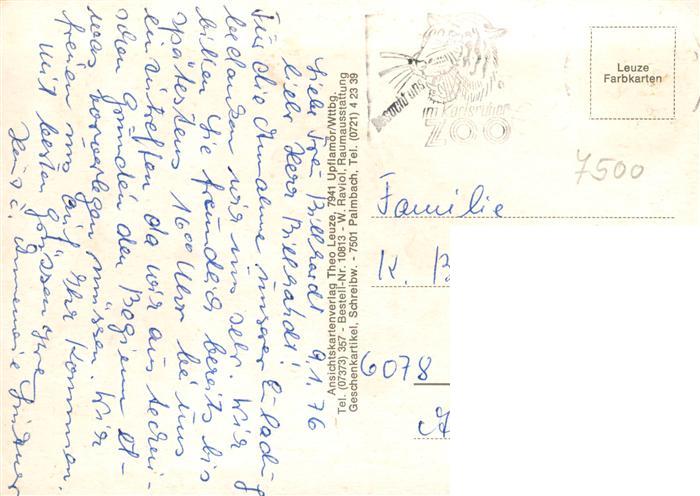 9.1.76
Liebe Frau Billhardt
liebe Herr Billhardt!
Für die Annahme unserer Einladung
bedanken wir uns sehr. Wir
bitten Sie freundlich bereits bis
spätestens 16 00 Uhr bei uns
einzutreffen da wir aus techni-
schen Gründen den Beginn et-
was vorverlegen müssen. Wir
freuen uns auf Ihr Kommen.
Mit besten Grüssen Ihre
Heinz u. Annemarie
Ansichtskartenverlag Theo Leuze, 7941 Upflamör/Wttbg.
Tel. (07373) 357 - Bestell-Nr. 10813 - W. Raviol, Raumausstattung
Geschenkartikel, Schreibw. - 7501 Palmbach, Tel. (0721) 4 23 39
Besucht uns
im Karlsruher
ZOO
Leuze
Farbkarten
7500
Familie
K. B
6078